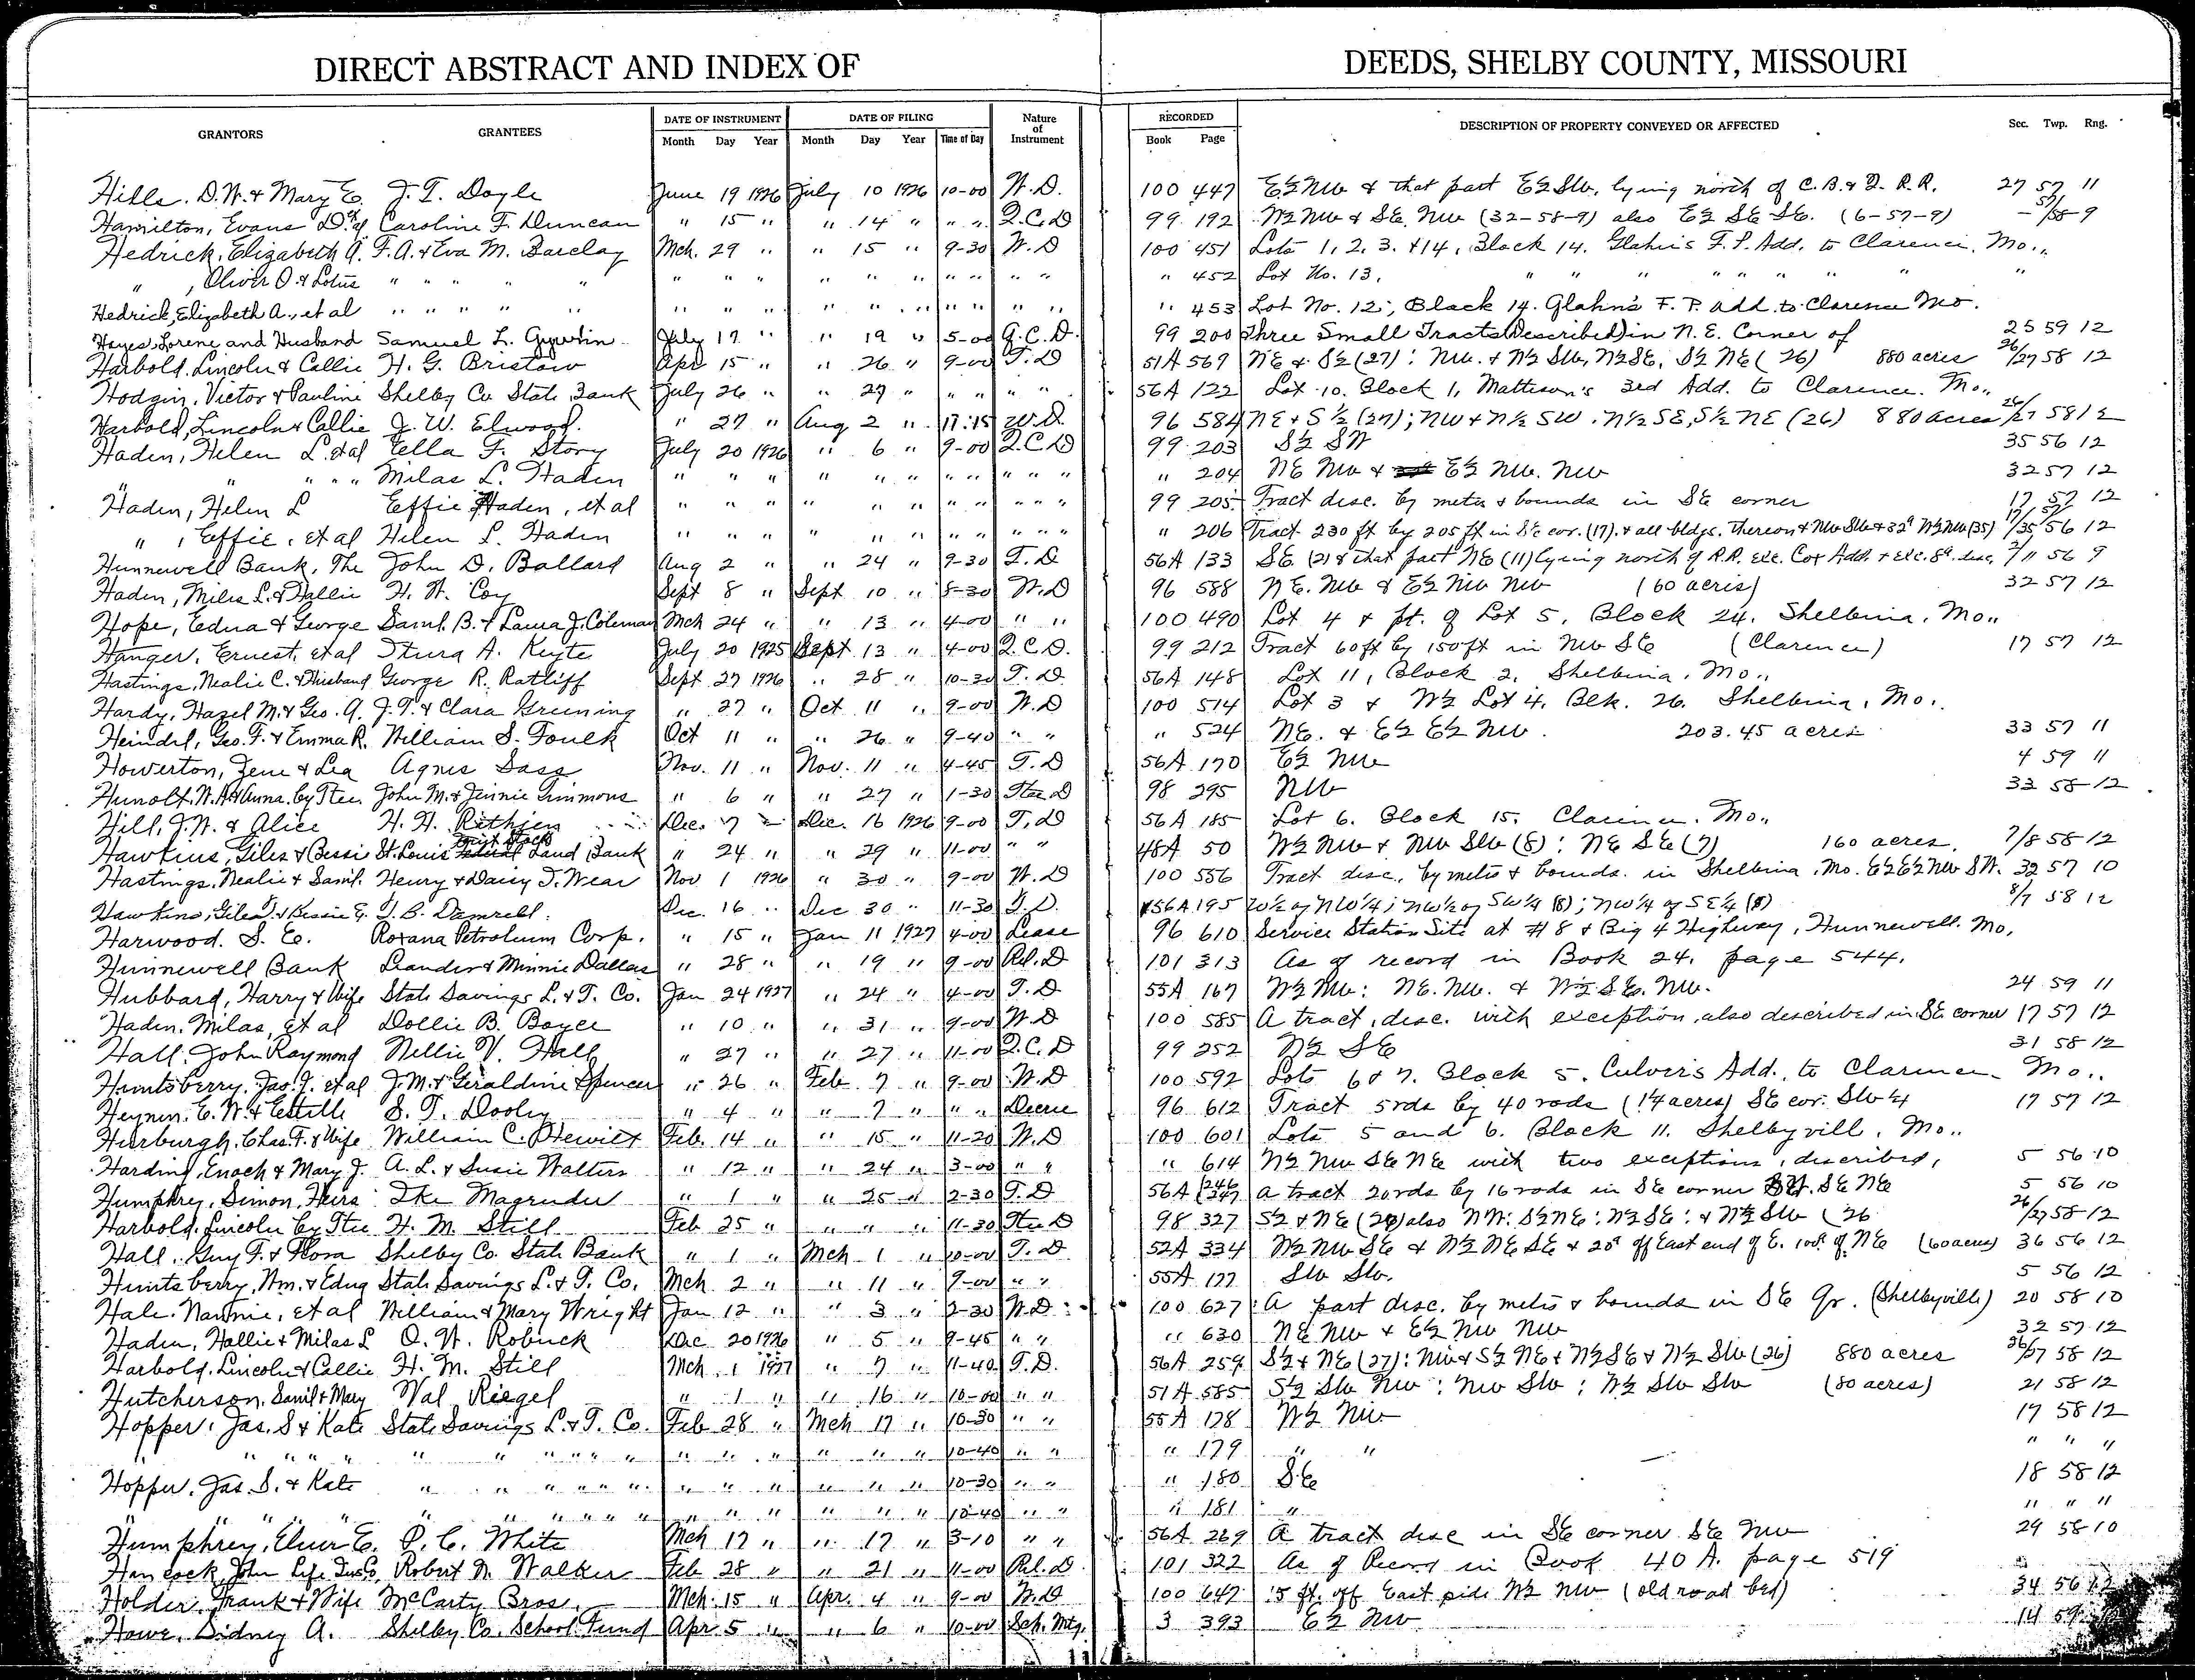 DIRECT ABSTRACT AND INDEX OF DEEDS, SHELBY COUNTY, MISSOURI
GRANTORS GRANTEES DATE OF INSTRUMENT DATE OF FILING Nature of Instrument RECORDED DESCRIPTION OF PROPERTY CONVEYED OR AFFECTED Sec. Twp. Rng.
Month Day Year Month Day Year Time of Day Book Page
Hills. D.W. & Mary E. J. T. Doyle June 19 1926 July 10 1926 10-00 W.D. 100 447 E½ NW & that part E½ SW, lying north of C.B. & Q. R.R. 27 57 11
Hamilton, Evans Caroline F. Duncan " 15 " " 14 " " " Q.C.D 99 192 W½ NW & SE NW (32-58-9) also E½ SE SE. (6-57-9) - 57/58 9
Hedrick, Elizabeth A. F.A. & Eva M. Barclay Mch. 29 " " 15 " 9-30 W.D 100 451 Lots 1, 2, 3, & 14, Block 14. Glahn's F.P. Add. to Clarence, Mo.,
" , Oliver O. & Lotus " " " " " " " " " " " " " " " 452 Lot No. 13, " " " " " " " " "
Hedrick, Elizabeth A., et al " " " " " " " " " " " " " " " 453 Lot No. 12, Block 14. Glahn's F. P. add. to Clarence Mo.
Hayes, Lorene and Husband Samuel L. July 17 " " 19 " 5-00 Q.C.D. 99 200 Three Small Tracts (Described) in N.E. Corner of 25 59 12
Harbold, Lincoln & Callie H. G. Bristow Apr 15 " " 26 " 9-00 T.D 51A 569 NE & S½ (27): NW. & N½ SW, N½ SE, S½ NE (26) 880 acres 26/27 58 12
Hodgin, Victor & Pauline Shelby Co State Bank July 26 " " 27 " " " " " 56A 122 Lot 10. Block 1, Mattison's 3rd Add. to Clarence. Mo.,
Harbold, Lincoln & Callie J. W. Elwood. " 27 " Aug 2 " W.D. 96 584 NE & S½ (27); NW & N½ SW. N½ SE, S½ NE (26) 880 acres 26/27 58 12
Haden, Helen L. et al Tella F. Story July 20 1926 " 6 " 9-00 Q.C.D 99 203 S½ SW 35 56 12
" " " " Milas L. Haden " " " " " " " " " " " " 204 NE NW & E½ NW. NW 32 57 12
Haden, Helen L Effie Haden, et al " " " " " " " " " " " 99 205 Tract desc. by metes & bounds in SE corner 17 57 12
" , Effie, et al Helen L. Haden " " " " " " " " " " " " 206 Tract 230 ft by 205 ft in SE cor. (17). & all bldgs. thereon & NW SW & 32ª W½ NW (35) 17/35 57/56 12
Hunnewell Bank, The John D. Ballard Aug 2 " " 24 " 9-30 T.D 56A 133 SE (2) & that part NE (11) lying north of R.R. exc. Cox Add. & exc. 8ª. desc, 2/11 56 9
Haden, Miles L. & Hallie H. H. Coy Sept 8 " Sept 10 " 8-30 W.D 96 588 N E. NW & E½ NW NW (60 acres) 32 57 12
Hope, Edna & George Saml. B. & Laura J. Coleman Mch 24 " " 13 " 4-00 " " 100 490 Lot 4 & pt. of Lot 5, Block 24. Shelbina, Mo.,
Hanger, Ernest, et al A. Keyte July 20 1925 Sept 13 " 4-00 Q.C.D. 99 212 Tract 60 ft by 150 ft in NW SE (Clarence) 17 57 12
Hastings, Nealie C. & Husband George R. Ratliff Sept 27 1926 " 28 " 10-30 T.D. 56A 148 Lot 11, Block 2, Shelbina, Mo.,
Hardy, Hazel M. & Geo. A. J. T. & Clara Greening " 27 " Oct 11 " 9-00 W.D 100 514 Lot 3 & W½ Lot 4, Blk. 26. Shelbina, Mo.,
Heindel, Geo. F. & Emma R. William S. Foulk Oct 11 " " 26 " 9-40 " " " 524 NE. & E½ E½ NW. 203.45 acres 33 57 11
Howerton, Zene & Lea Agnes Sass Nov. 11 " Nov. 11 " 4-45 T.D 56A 170 E½ NW 4 59 11
Hunolt, W. A. & Anna. by Stee. John M. & Jennie Timmons " 6 " " 27 " 1-30 Stee D 98 295 NW 33 58 12
Hill, J. W. & Alice H. H. Rethjen Dec. 7 " Dec. 16 1926 9-00 T.D 56A 185 Lot 6. Block 15. Clarence. Mo.,
Hawkins, Giles & Bessie St. Louis Joint Stock Land Bank " 24 " " 29 " 11-00 " " 48A 50 W½ NW & NW SW (8): NE SE (7) 160 acres, 7/8 58 12
Hastings, Nealie & Saml. Henry & Daisy T. Wear Nov 1 1926 " 30 " 9-00 W.D 100 556 Tract desc, by metes & bounds. in Shelbina, Mo. E½ E½ NW SW. 32 57 10
Hawkins, Giles T. & Bessie E. T. B. Damrell. Dec. 16 " Dec 30 " 11-30 T.D. 56A 195 W½ of NW¼; NW¼ of SW¼ (8); NW¼ of SE¼ (8) 8/7 58 12
Harwood. S. E. Roxana Petroleum Corp. " 15 " Jan 11 1927 4-00 Lease 96 610 Service Station Site at #8 & Big 4 Highway, Hunnewell. Mo,
Hunnewell Bank Leander & Minnie Dallas " 28 " " 19 " 9-00 Rel.D 101 313 As of record in Book 24, page 544.
Hubbard, Harry & Wife State Savings L. & T. Co. Jan 24 1927 " 24 " 4-00 T.D 55A 167 W½ NW: NE. NW. & W½ SE. NW. 24 59 11
Haden. Milas, et al Dollie B. Boyer " 10 " " 31 " 9-00 W.D 100 585 A tract, desc. with exception, also described in SE corner 17 57 12
Hall, John Raymond Nellie V. Hall " 27 " " 27 " 11-00 Q.C.D 99 252 N½ SE 31 58 12
Huntsberry, Jas. J. et al J.M. & Geraldine Spencer " 26 " Feb 7 " 9-00 W.D 100 592 Lots 6 & 7. Block 5. Culver's Add., to Clarence. Mo.,
Heynen. E. W. & Estelle S. T. Dooley " 4 " " 7 " " " Decree 96 612 Tract 5 rds by 40 rods (1¼ acres) SE cor. SW¼ 17 57 12
Hurburgh, Chas. F. & Wife William C. Hewitt Feb. 14 " " 15 " 11-20 W.D 100 601 Lots 5 and 6. Block 11. Shelbyville, Mo.,
Harding, Enoch & Mary J. A. L. & Susie Walters " 12 " " 24 " 3-00 " " " 614 N½ NW SE NE with two exceptions, described, 5 56 10
Humphrey, Simon, Heirs Ike Magruder " 1 " " 25 " 2-30 T.D 56A 246/247 A tract 20 rds by 16 rods in SE corner SE NE 5 56 10
Harbold, Lincoln by Stee H. M. Still Feb 25 " " " " 11-30 Stee D 98 327 S½ & NE (27) also NW: S½ NE: N½ SE: & N½ SW (26 26/27 58 12
Hall, Guy F. & Flora Shelby Co. State Bank " 1 " Mch 1 " 10-00 T.D 52A 334 W½ NW SE & W½ NE SE & 20ª off East end of E. 100ª of NE (60 acres) 36 56 12
Huntsberry, Wm. & Edna State Savings L. & T. Co. Mch 2 " " 11 " 9-00 " " 55A 177 SW SW. 5 56 12
Hale. Nannie, et al William & Mary Wright Jan 12 " " 3 " 2-30 W.D. 100 627 A part desc. by metes & bounds in SE Qr. (Shelbyville) 20 58 10
Haden, Hallie & Milas L O. W. Robuck Dec 20 1926 " 5 " 9-45 " " " 630 NE NW & E½ NW NW 32 57 12
Harbold, Lincoln & Callie H. M. Still Mch. 1 1927 " 7 " 11-40 T.D. 56A 259 S½ & NE (27): NW & S½ NE & N½ SE & N½ SW (26) 880 acres 26/27 58 12
Hutcherson, Saml & Mary Val Riegel " 1 " " 16 " 10-00 " " 51A 585 S½ SW NW: NW SW; N½ SW SW (80 acres) 21 58 12
Hopper, Jas. S & Kate State Savings L. & T. Co. Feb 28 " Mch 17 " 10-30 " " 55A 178 W½ NW 17 58 12
" " " " " " " " " " " " " " " 10-40 " " " 179 " " " " "
Hopper, Jas. S. & Kate " " " " " " " " " " " " 10-30 " " " 180 SE 18 58 12
" " " " " " " " " " " " " " " 10-40 " " " 181 " " " "
Humphrey, Elver E. P. C. White Mch 17 " " 17 " 3-10 " " 56A 269 A tract desc in SE corner SE NW 29 58 10
Hancock, John Life Ins Co, Robert N. Walker Feb 28 " " 21 " 11-00 Rel.D. 101 322 As of Record in Book 40 A. page 519
Holder, Frank & Wife McCarty Bros. Mch. 15 " Apr. 4 " 9-00 W.D 100 647 15 ft. off East side W½ NW (old road bed) 34 56 12
Howe, Sidney A. Shelby Co. School Fund Apr. 5 " " 6 " 10-00 Sch. Mtg. 3 393 E½ NW 14 59